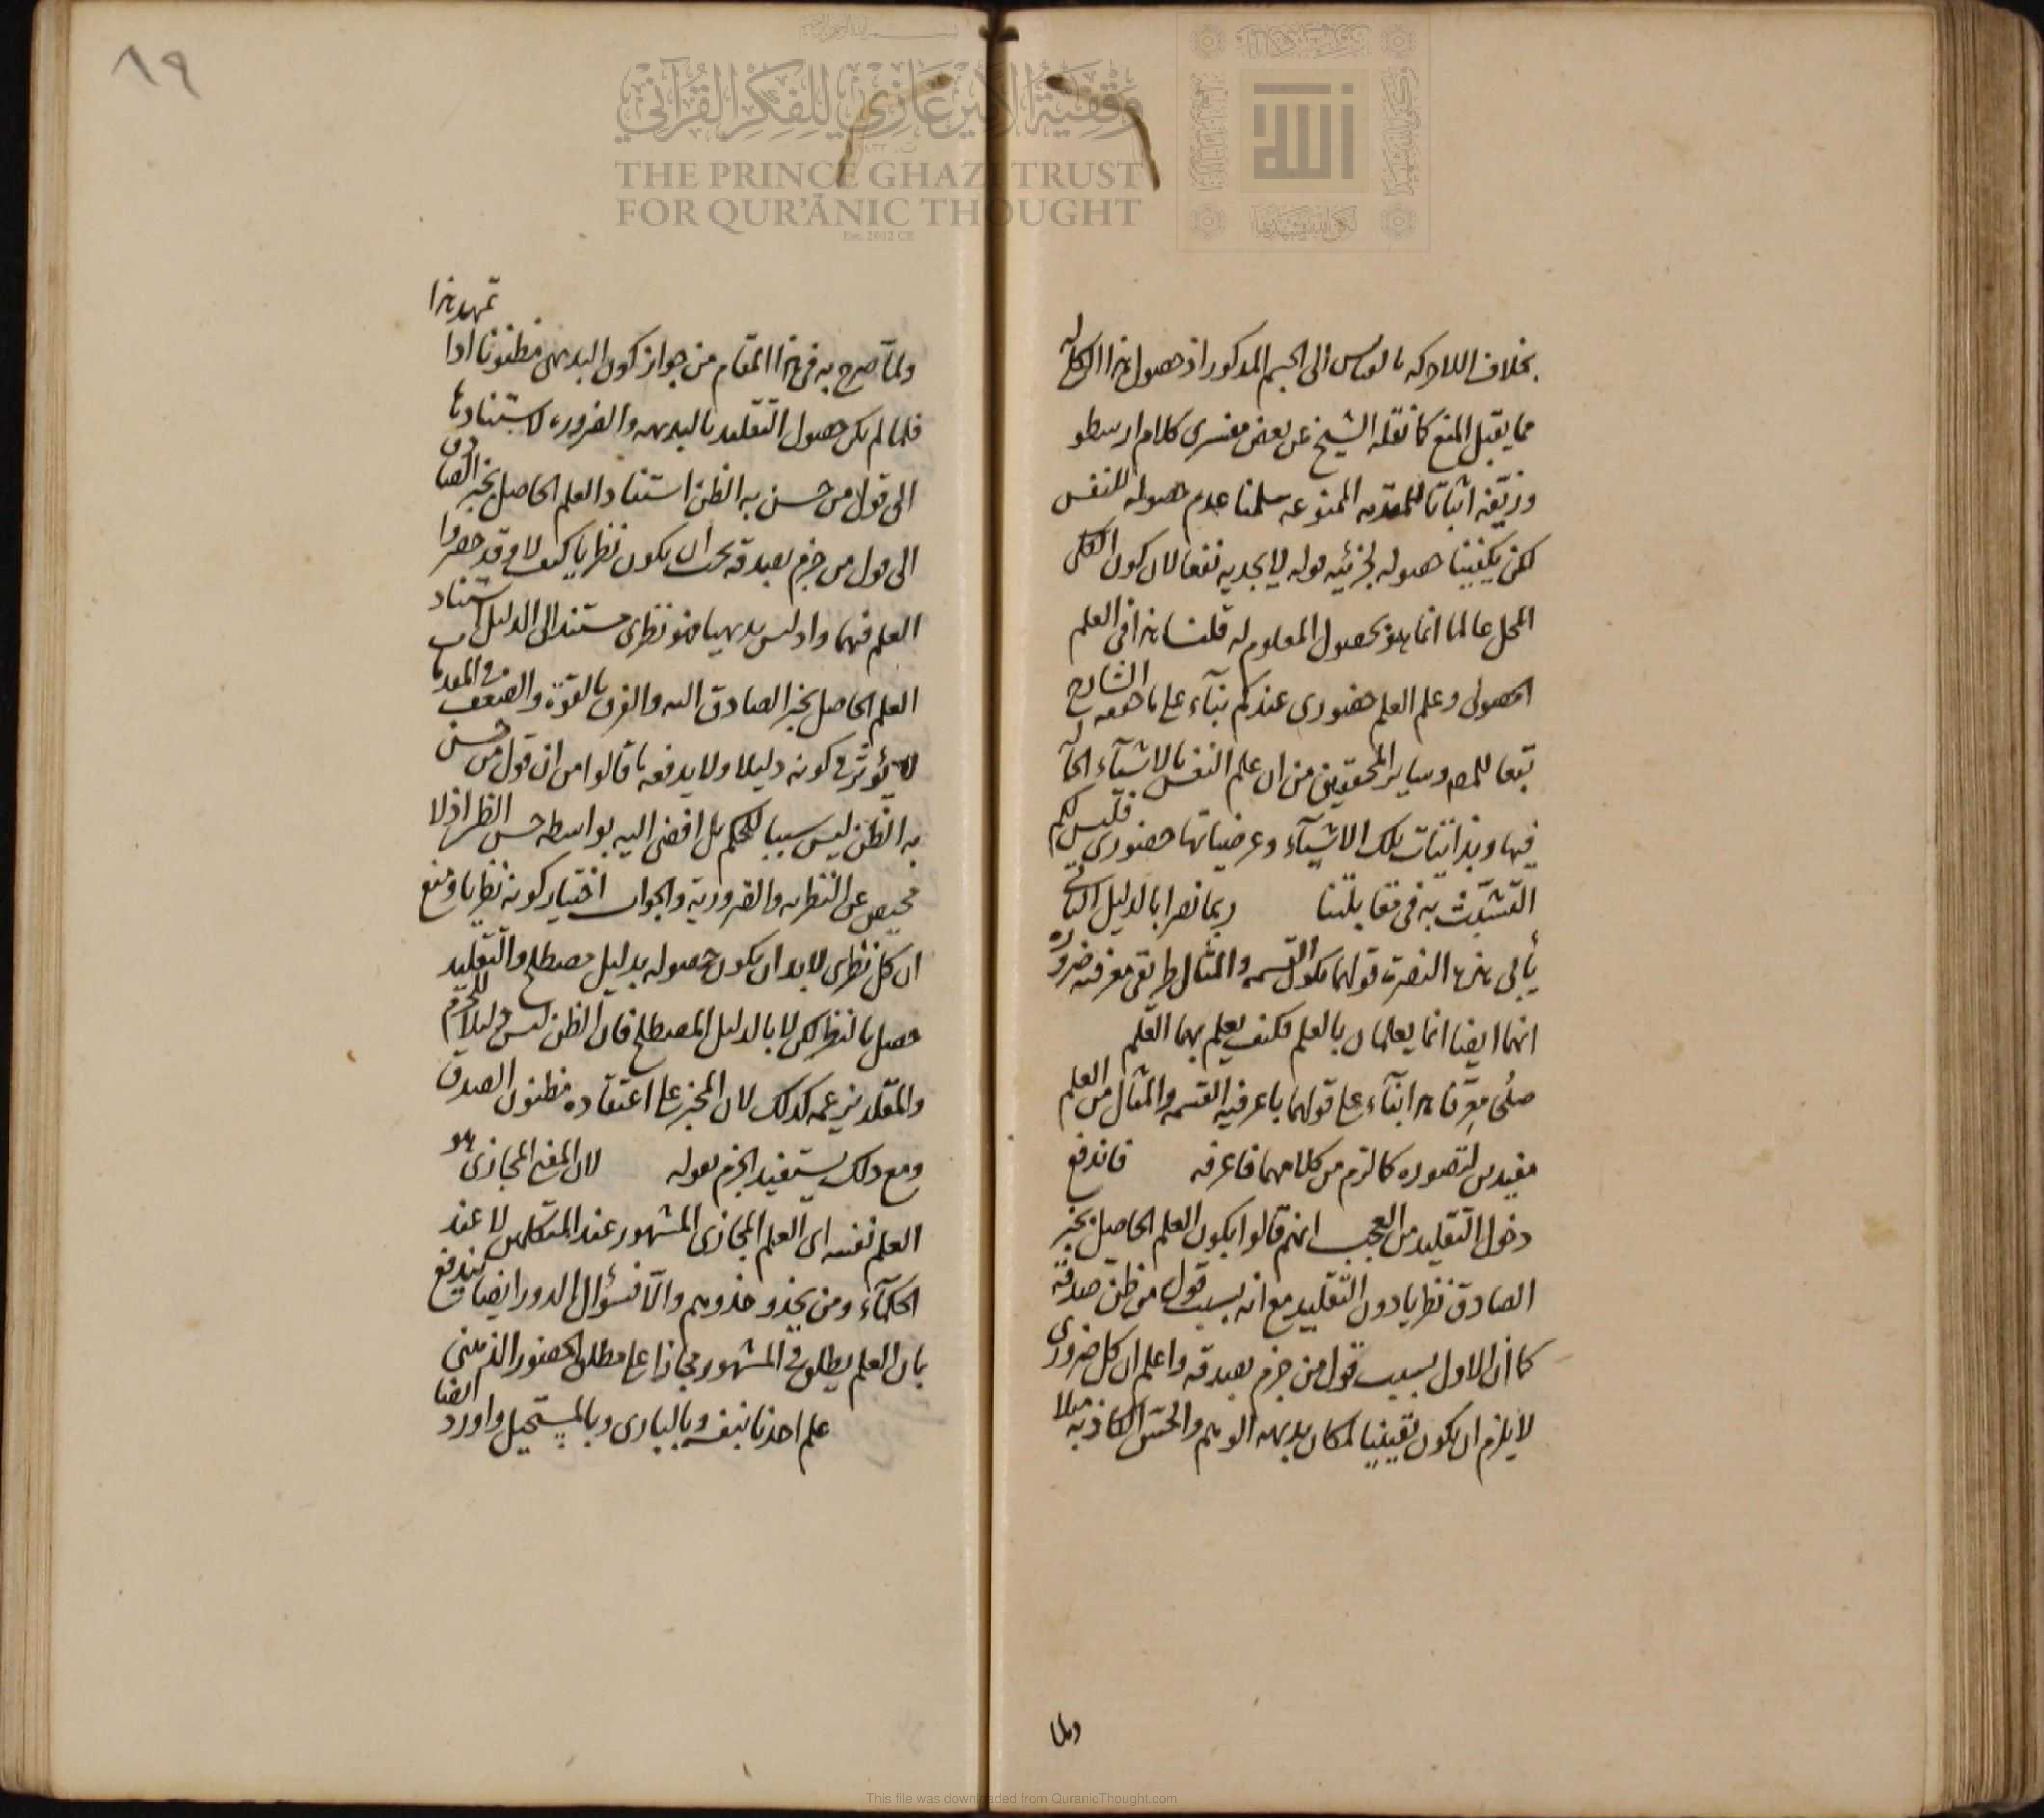 بخلاف اللادركه بالقياس الى الجسم المذكور اذ حصول هذا الكلام له
مما يقبل المنع كما نقله الشيخ عن بعض مفسرى كلام ارسطو
وزيّفه اثباتا للمقدمه الممنوعه سلمنا عدم حصوله للنفس
لكن يكفينا حصوله لجزئيه قوله لا يجديه نفعا لان كون الكل
المحل عالما انما هو بحصول المعلوم له قلنا هذا فى العلم
الحصولى وعلم العلم حضورى عندكم بناء على ما حققه الشارح
تبعا للمص وساير المحققين من ان علم النفس بالاشياء
فيها وبذاتيات تلك الاشياء وعرضياتها حضورى فليس لكم
التشبّث به فى مقابلتنا ربما نصرا بالدليل
يأبى هذه النصرة قولهما بكون القسمه والمثال طريق معرفته ضروره
انهما ايضا انما يعلمان بالعلم فكيف يعلم بهما العلم
صلُحَ معرّفا هذا بناء على قولهما ما عرفيه القسمه والمثال من العلم
مفيد لتصوره كما لزم من كلامهما فاعرفه فاندفع
دخول التقليد من العجب انهم قالوا بكون العلم الحاصل بخبر
الصادق نظريا دون التقليد مع انه بسبب قول من ظنّ صدقه
كما أن الاول بسبب قول من جزم بصدقه واعلم ان كل ضرورى
لا يلزم ان يكون يقينيا لمكان بديهه الوهم والحسّ الكاذبه مثلا
ولما
٨٩
تمهد هذا
ولما صرح به فى هذا المقام من جواز كون البديهى مظنونا اذا
فلما لم يكن حصول التقليد بالبديهه والضروره لاستنادها
الى قول من حسن به الظن استناد العلم الحاصل بخبر الصادق
الى قول من جزم بصدقه يجب ان يكون نظريا كيف لا وقد حصروا
العلم فيهما واذ ليس بديهيا فهو نظرى مستند الى الدليل استناد
العلم الحاصل بخبر الصادق اليه والفرق بالقوّة والضعف فى المقدمات
لا يؤثّر فى كونه دليلا ولا يدفعه ما قالوا من ان قول من حسن
به الظن ليس سببا للحكم بل افضى اليه بواسطه حسن الظن اذ لا
محيص عن النظريه والضرورية والجواب اختيار كونه نظريا ومنع
ان كل نظرى لا بد ان يكون حصوله بدليل مصطلح والتقليد
حصل بالنظر لكن لا بالدليل المصطلح فان الظن ليس دليلا للجزم
والمقلد يزعمه كذلك لان المخبر على اعتقاده مظنون الصدق
ومع ذلك يستفيد الجزم بقوله لان المعنى المجازى هو
العلم نفسه اى العلم المجازى المشهور عند المتكلمين لا عند
الحكماء ومن يحذو حذوهم والّا فسؤال الدور ايضا يندفع
بان العلم يطلق فى المشهور مجازا على مطلق الحضور الذهنى
علم احدنا بنفسه وبالبارى وبالمستحيل واورد ايضا
THE PRINCE GHAZI TRUST
FOR QUR'ĀNIC THOUGHT
Est. 2012 CE
وقفية الأمير غازي للفكر القرآني
الله
This file was downloaded from QuranicThought.com